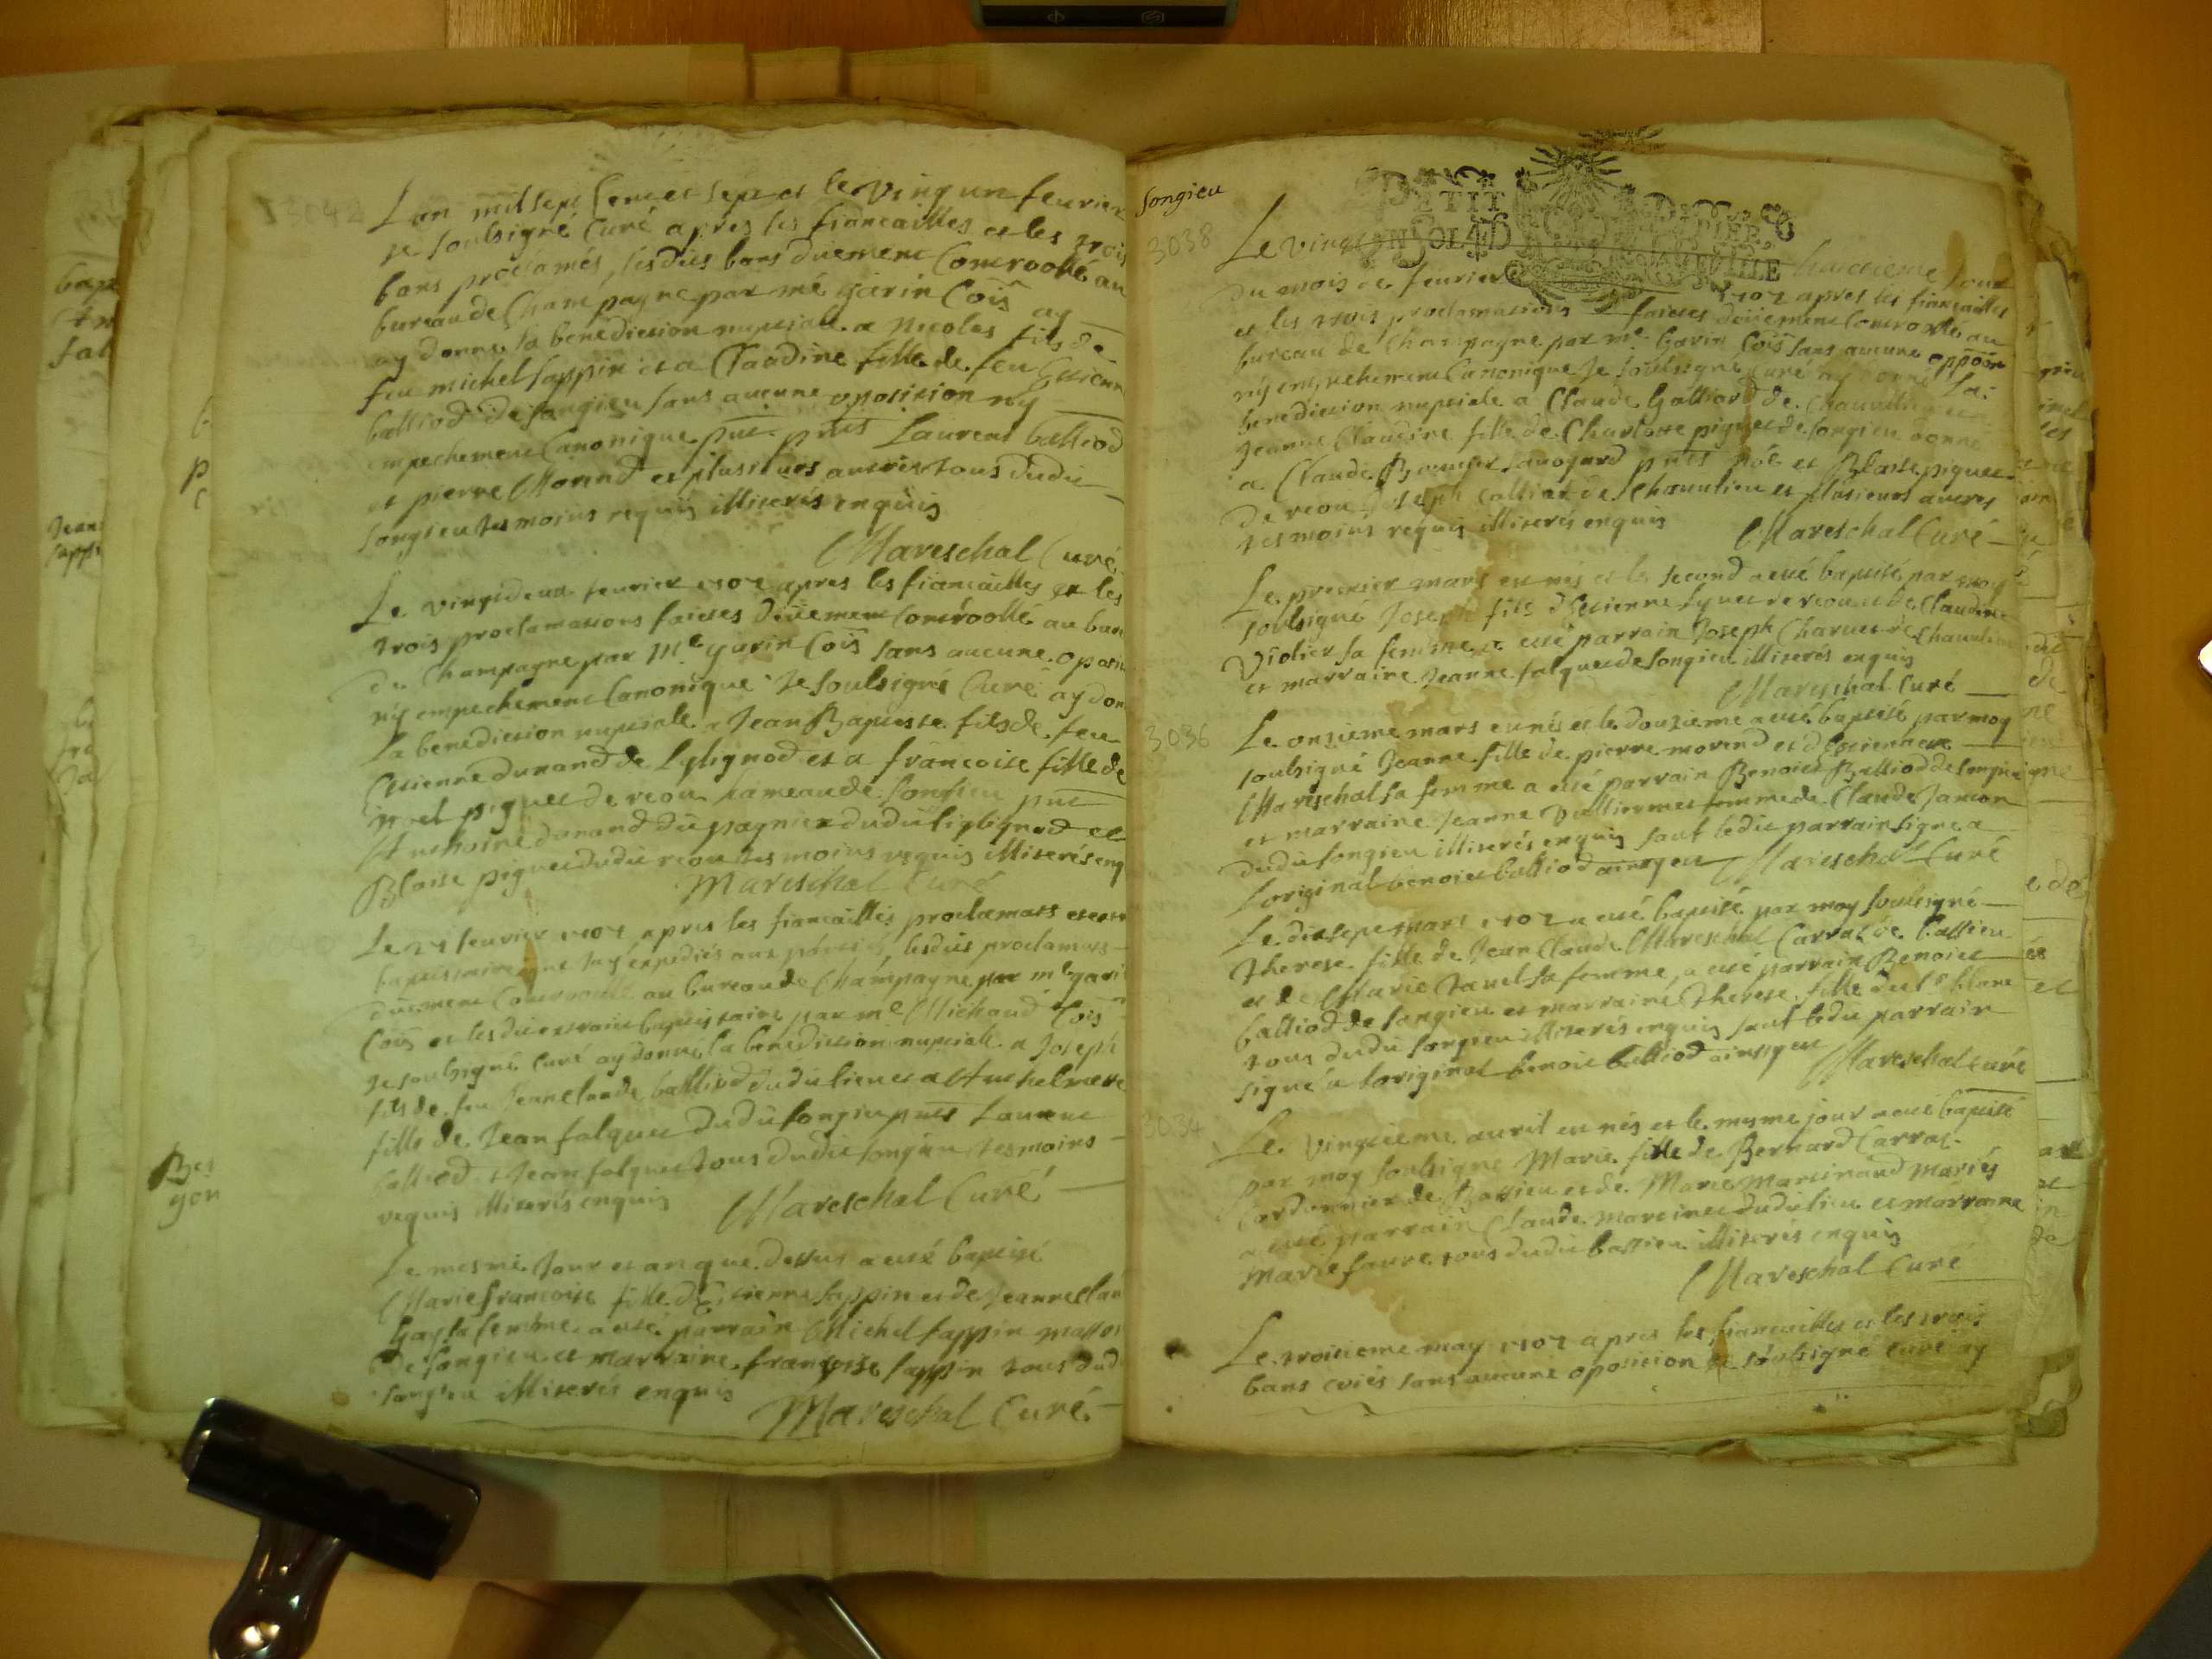 Lan mil sept cent et sept et le vingt un feurier
je soubsigné Curé apres les fiancailles et les trois
bans proclamés, lesdits bans duement Controollé au
bureau de Champagne par me garin Cois ay
ay donné la benediction nuptiale a nicolas fils de
feu michel sappin et a Claudine fille de feu Estienne
balliod de songieu sans aucune oposition ny
empechement Canonique pnt pnts Laurent balliod
et pierre Morend et plusieurs autres tous dudit
songieu tesmoins requis illiterés enquis
Mareschal Curé
Le vingt deux feurier 1707 apres les fiancailles et les
trois proclamations faictes deüement Controollé au bure
de Champagne par Me garin Cois sans aucune oposit
ny empechement Canonique Je soubsigné Curé ay don
La benediction nuptiale a Jean Baptiste fils de feu
Estienne durand de Lylignod et a francoise fille de
noel piguet de reou hameau de songieu pnt
Anthoine durand du pagnier dudit liglignod et
Blaise piguet dudit reou tesmoins requis illiterés enq
Mareschal Curé
Le feurier 1707 apres les fiancailles proclamats
baptistaire expediés aux parties, lesdits proclamats
duement Controollé au bureau de Champagne par me gari
Cois et lesdit extraict baptistaire par me Michaud Cois
Je soubsigné Curé ay donné la benediction nuptiale a Joseph
fils de feu Jean claude balliod dudit lieu et a Anthelmete
fille de Jean falquet dudit songieu pnts Laurent
balliod et Jean falquet tous dudit songieu tesmoins
requis illiterés enquis Mareschal Curé
Le mesme Jour et an que dessus a esté baptisé
Marie francoise fille d'Estienne sappin et de Jeanne clau
Gay sa femme a esté parrain Michel sappin masson
de songieu et marraine francoise sappin tous dud
songieu illiterés enquis
Mareschal Curé
Songieu
PETIT PAPIER
3038
Le vingt huictieme Jour
du mois de feurier 1707 apres les fiancailles
et les trois proclamations faictes deüement Controollé au
bureau de Champagne par me Garin Cois sans aucune oppon
ny empechement Canonique Je soubsigné Curé ay donné la
benediction nuptiale a Claude Galliard de Chauulieu
Jeanne Claudine fille de Charlotte piguet de songieu donné
a Claude sauoyard pnts noel et Blaise piguet
de reou Joseph Calliat de Chauulieu et plusieurs autres
tesmoins requis illiterés enquis Mareschal Curé
Le premier mars est nés et le second a esté baptisé par moy
soubsigné Joseph fils d'Estienne de reou et de Claudine
Violier sa femme a esté parrain Joseph Charuet de Chauulieu
et marraine Jeanne falquet de songieu illiterés enquis
Mareschal Curé
3036
Le onzieme mars est nés et le douzieme a esté baptisé par moy
soubsigné Jeanne fille de pierre morend et d'Estiennete
Mareschal sa femme a esté parrain Benoict Balliod de songieu
et marraine Jeanne Vulliermet femme de Claude Jancon
dudit songieu illiterés enquis sauf ledit parrain signé a
Loriginal benoict balliod ainsy est Mareschal Curé
Le dixsept mars 1707 a esté baptisé par moy soubsigné
Therese fille de Jean Claude Mareschal Carrat de bassieu
et de Marie Tauel sa femme, a esté parrain Benoict
balliod de songieu et marraine Therese fille du Sr blanc
tous dudit songieu illiterés enquis sauf ledit parrain
signé a loriginal benoit balliod ainsy est Mareschal Curé
3034
Le vingtieme auril est nés et le mesme jour a esté baptisé
par moy soubsigne Marie fille de Bernard Carrat
Cordonnier de Bassieu et de Marie Martinand Mariés
a esté parrain Claude Martinet dudit lieu et marraine
Marie faure tous dudit bassieu illiterés enquis
Mareschal Curé
Le troisieme may 1707 apres les fiancailles et les trois
bans criés sans aucune oposition Je soubsigné Curé ay